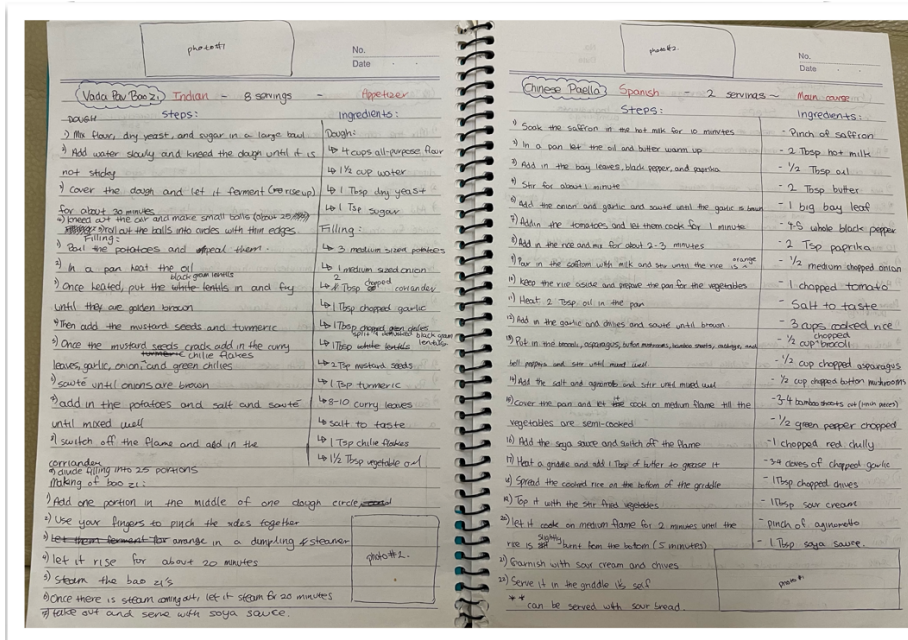 photo #1
No.
Date
Vada Pav Bao Zi Indian ~ 8 servings - Appetizer
DOUGH Steps:
1) Mix flour, dry yeast, and sugar in a large bowl
2) Add water slowly and kneed the dough until it is
not sticky
3) cover the dough and let it ferment (rise up)
for about 30 minutes
4) kneed out the air and make small balls (about 25)
roll out the balls into circles with thin edges.
Filling:
1) Boil the potatoes and peal them.
2) In a pan heat the oil
3) Once heated, put the black gram lentils in and fry
until they are golden brown
4) Then add the mustard seeds and turmeric
5) Once the mustard seeds crack add in the curry
leaves, garlic, onion, chilie flakes and green chilies
6) saute until onions are brown
7) add in the potatoes and salt and sauté
until mixed well
8) switch off the flame and add in the
corriander
9) divide filling into 25 portions
Making of bao zi:
1) Add one portion in the middle of one dough circle
2) Use your fingers to pinch the sides together
3) arange in a dumpling steamer
4) let it rise for about 20 minutes
5) steam the bao zi's
6) Once there is steam coming out, let it steam for 20 minutes
7) take out and serve with soya sauce.
Ingredients:
Dough:
↳ 4 cups all-purpose flour
↳ 1½ cup water
↳ 1 Tbsp dry yeast
↳ 1 Tsp sugar
Filling:
↳ 3 medium sized potatoes
↳ 1 medium sized onion
↳ 2 Tbsp chopped corriander
↳ 1 Tbsp chopped garlic
↳ 1 Tbsp chopped green chilies
↳ 1 Tbsp split & dehusked black gram lentils
↳ 2 Tsp mustard seeds
↳ 1 Tsp turmeric
↳ 8-10 curry leaves
↳ salt to taste
↳ 1 Tsp chilie flakes
↳ 1½ Tbsp vegetable oil
photo #2.
photo #2.
No.
Date
Chinese Paella Spanish - 2 servings ~ Main course
Steps:
1) Soak the saffron in the hot milk for 10 minutes
2) In a pan let the oil and butter warm up
3) Add in the bay leaves, black pepper, and paprika
4) Stir for about 1 minute
6) Add the onion and garlic and sauté until the garlic is brown
7) Add in the tomatoes and let them cook for 1 minute
8) Add in the rice and mix for about 2-3 minutes
9) Pour in the saffron with milk and stir until the rice is orange
10) Keep the rice aside and prepare the pan for the vegetables
11) Heat 2 Tbsp oil in the pan
12) Add in the garlic and chives and sauté until brown
13) Put in the brocoli, asparagus, button mushrooms, bamboo shoots, and
bell peppers and stir until mixed well
14) Add the salt and aginomoto and stir until mixed well
15) Cover the pan and let it cook on medium flame till the
vegetables are semi-cooked
16) Add the soya sauce and switch off the flame
17) Heat a griddle and add 1 Tbsp of butter to grease it
18) Spread the cooked rice on the bottom of the griddle
19) Top it with the stir fried vegetables
20) let it cook on medium flame for 2 minutes until the
rice is slightly burnt from the bottom (5 minutes)
21) Garnish with sour cream and chives
22) Serve it in the griddle it's self
** can be served with sour bread.
Ingredients:
- Pinch of saffron
- 2 Tbsp hot milk
- ½ Tbsp oil
- 2 Tbsp butter
- 1 big bay leaf
- 4-5 whole black pepper
- 2 Tsp paprika
- ½ medium chopped onion
- 1 chopped tomato
- Salt to taste
- 3 cups cooked rice
- ½ cup chopped brocoli
- ½ cup chopped asparagus
- ½ cup chopped button mushrooms
- 3-4 bamboo shoots cut (1 inch pieces)
- ½ green pepper chopped
- 1 chopped red chilly
- 3-4 cloves of chopped garlic
- 1 Tbsp chopped chives
- 1 Tbsp sour cream
- pinch of aginomoto
- 1 Tbsp soya sauce.